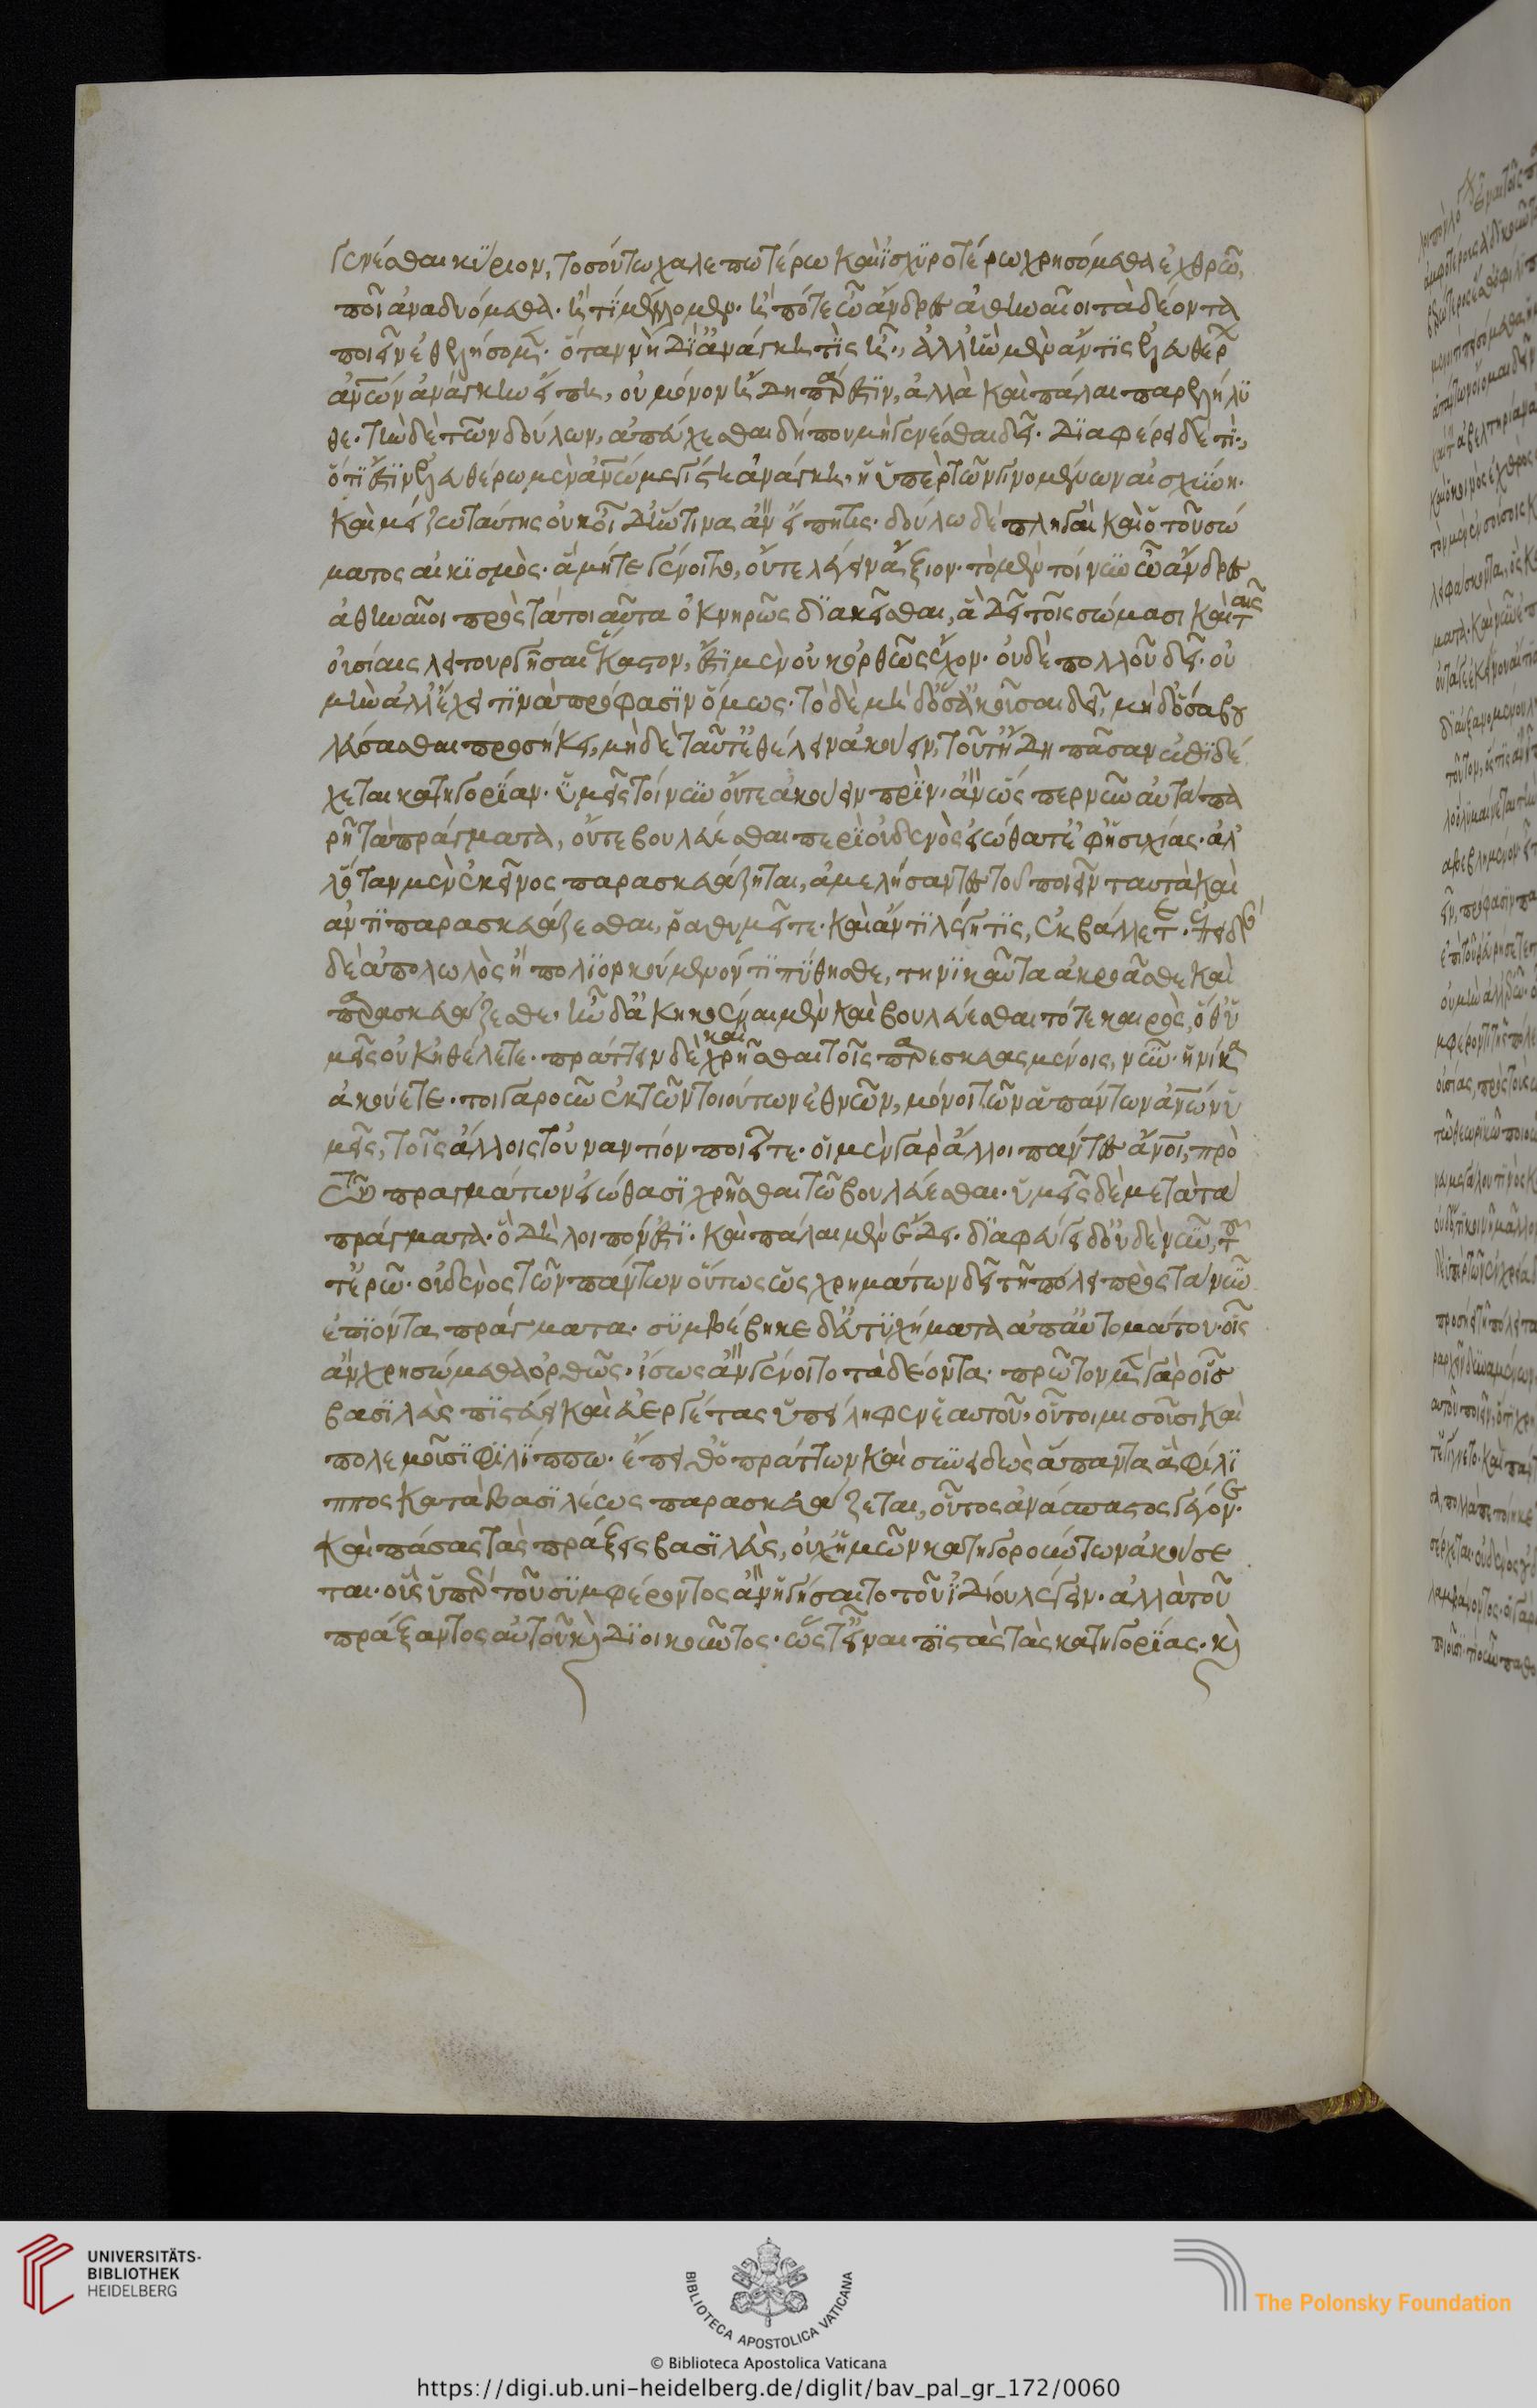 γενέσθαι κύριον, τοσούτω χαλεπωτέρω καὶ ἰσχυροτέρω χρησόμεθα ἐχθρῶ,
ποῖ ἀναδυόμεθα· ἢ τί μέλλομεν· ἢ πότε ὦ ἄνδρες ἀθηναῖοι τὰ δέοντα
ποιεῖν ἐθελήσομεν· ὅταν νὴ Δί' ἀνάγκη τὶς ἦ·, ἀλλ' ἣν μὲν ἄν τις ἐλευθέρων
ἀνθρώπων ἀνάγκην εἴπη, οὐ μόνον ἤδη πάρεστιν, ἀλλὰ καὶ πάλαι παρελήλυ
θε· τὴν δὲ τῶν δούλων, ἀπεύχεσθαι δήπου μὴ γενέσθαι δεῖ· διαφέρει δὲ τί·,
ὅτι ἐστὶν ἐλευθέρω μὲν ἀνθρώπω μεγίστη ἀνάγκη, ἡ ὑπὲρ τῶν γινομένων αἰσχύνη·
καὶ μείζω ταύτης οὐκ οἶδ' ἥντινα ἂν εἴπη τις· δούλω δὲ πληγαὶ καὶ ὁ τοῦ σώ
ματος αἰκισμὸς· ἃ μήτε γένοιτο, οὔτε λέγειν ἄξιον· τὸ μὲν τοίνυν ὦ ἄνδρες
ἀθηναῖοι πρὸς τὰ τοιαῦτα ὀκνηρῶς διακεῖσθαι, ἃ δεῖ τοῖς σώμασι καὶ ταῖς
οὐσίαις λειτουργῆσαι ἕκαστον, ἐστὶ μὲν οὐκ ὀρθῶς ἔχον· οὐδὲ πολλοῦ δεῖ· οὐ
μὴν ἀλλ' ἔχει τινὰ πρόφασιν ὅμως· τὸ δὲ μηδ' ὅσ' ἀκοῦσαι δεῖ, μηδ' ὅσα βου
λεύσασθαι προσήκει, μηδὲ ταῦτ' ἐθέλειν ἀκούειν, τοῦτ' ἤδη πᾶσαν ἐπιδέ
χεται κατηγορίαν· ὑμεῖς τοίνυν οὔτε ἀκούειν πρὶν· ἂν ὥσπερ νῦν αὐτὰ πα
ρῆ τὰ πράγματα, οὔτε βουλεύεσθαι περὶ οὐδενὸς εἰώθατ' ἐφ' ἡσυχίας· ἀλ
λ' ὅταν μὲν ἐκεῖνος παρασκευάζηται, ἀμελήσαντες τοῦ ποιεῖν ταυτὰ καὶ
ἀντιπαρασκευάζεσθαι, ῥαθυμεῖτε· καὶ ἄν τι λέγη τις, ἐκβάλλετε· ἐπειδὰν
δὲ ἀπολωλὸς ἢ πολιορκούμενόν τι πύθησθε, τηνικαῦτα ἀκροᾶσθε καὶ
παρασκευάζεσθε· ἦν δ' ἀκηκοέναι μὲν καὶ βουλεύεσθαι τότε καιρὸς, ὅθ' ὑ
μεῖς οὐκ ἠθέλετε· πράττειν δὲ καὶ χρῆσθαι τοῖς παρεσκευασμένοις, νῦν· ἡνίκα
ἀκούετε· τοιγαροῦν ἐκ τῶν τοιούτων ἐθνῶν, μόνοι τῶν ἁπάντων ἀνθρώπων ὑ
μεῖς, τοῖς ἄλλοις τοὐναντίον ποιεῖτε· οἱ μὲν γὰρ ἄλλοι πάντες ἄνθρωποι, πρὸ
τῶν πραγμάτων εἰώθασι χρῆσθαι τῶ βουλεύεσθαι· ὑμεῖς δὲ μετὰ τὰ
πράγματα· ὃ δὴ λοιπόν ἐστι· καὶ πάλαι μὲν ἔδει· διαφεύγει δ' οὐδὲ νῦν, τοῦ
τ' ἐρῶ· οὐδενὸς τῶν πάντων οὕτως ὡς χρημάτων δεῖ τῆ πόλει πρὸς τὰ νῦν
ἐπιόντα πράγματα· συμβέβηκε δ' εὐτυχήματα ἀπ' αὐτομάτου· οἷς
ἂν χρησώμεθα ὀρθῶς· ἴσως ἂν γένοιτο τὰ δέοντα· πρῶτον μὲν γὰρ οἷς
βασιλεὺς πιστεύει καὶ εὐεργέτας ὑπείληφεν ἑαυτοῦ, οὗτοι μισοῦσι καὶ
πολεμοῦσι φιλίππω· ἔπειθ' ὁ πράττων καὶ συνειδὼς ἅπαντα ἃ φίλι
ππος κατὰ βασιλέως παρασκευάζεται, οὗτος ἀνάσπαστος γέγονε·
καὶ πάσας τὰς πράξεις βασιλεὺς, οὐχ ἡμῶν κατηγορούντων ἀκούσε
ται· οὓς ὑπὲρ τοῦ συμφέροντος ἂν ἡγήσαιτο τοῦ ἰδίου λέγειν· ἀλλὰ τοῦ
πράξαντος αὐτοῦ καὶ διοικοῦντος· ὥστ' εἶναι πιστὰς τὰς κατηγορίας· καὶ
UNIVERSITÄTS-
BIBLIOTHEK
HEIDELBERG
BIBLIOTECA APOSTOLICA VATICANA
The Polonsky Foundation
© Biblioteca Apostolica Vaticana
https://digi.ub.uni-heidelberg.de/diglit/bav_pal_gr_172/0060